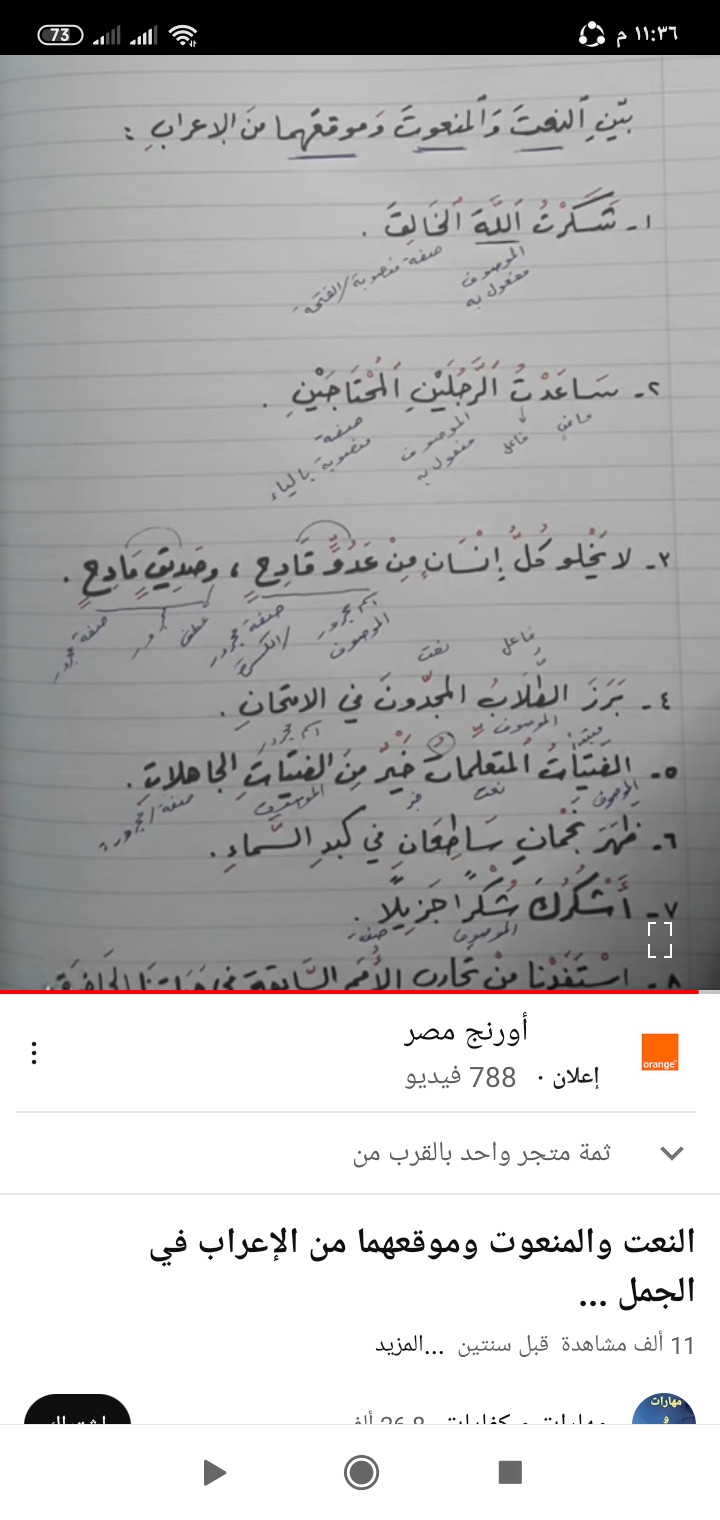 ١١:٣٦ م
73
بَيِّنِ النعتَ وَالمنعوتَ وَموقعَهُما مِنَ الإعرابِ :
١- شَكَرْتُ اللَّهَ الخَالِقَ .
الموصوف صفة منصوبة/الفتحة
مفعول به
٢- سَاعَدْتُ الرَّجُلَيْنِ المُحْتَاجَيْنِ .
ماضٍ فاعل الموصوف صفة
مفعول به منصوبة بالياء
٣- لا يَخْلو كُلُّ إِنْسَانٍ مِنْ عَدُوٍّ قَادِحٍ ، وصَدِيقٍ مَادِحٍ .
اسم مجرور صفة مجرور عطف مجرور صفة مجرور
الموصوف /الكسرة
فاعل نعت
٤- بَرَزَ الطُّلَّابُ المجدّونَ في الامتحانِ .
مبتدأ الموصوف اسم مجرور
٥- الفَتَيَاتُ المتعلماتُ خَيْرٌ مِنَ الفتيَاتِ الجاهلاتِ .
الموصوف نعت خبر الموصوف صفة/مجرورة
٦- ظَهَرَ نَجْمَانِ سَاطِعَانِ في كبدِ السَّماءِ .
٧- أَشْكُرُكَ شُكْرًا جَزِيلًا .
الموصوف صفة
٨- اسْتَفَدْنا مِنْ تجاربِ الأُمَمِ السَّابقةِ في
orange
أورنج مصر
إعلان · 788 فيديو
ثمة متجر واحد بالقرب من
النعت والمنعوت وموقعهما من الإعراب في
الجمل ...
11 ألف مشاهدة قبل سنتين ...المزيد
مهارات
و